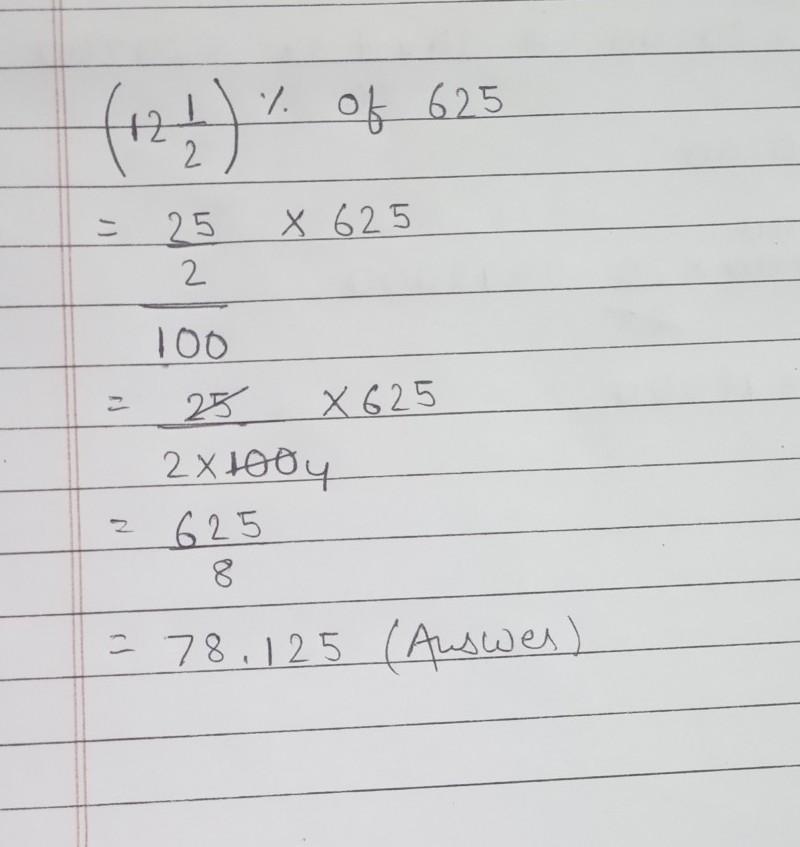 (12 1/2) % of 625
= 25 × 625
2
100
= 25 × 625
2 × 100 4
= 625
8
= 78.125 (Answer)